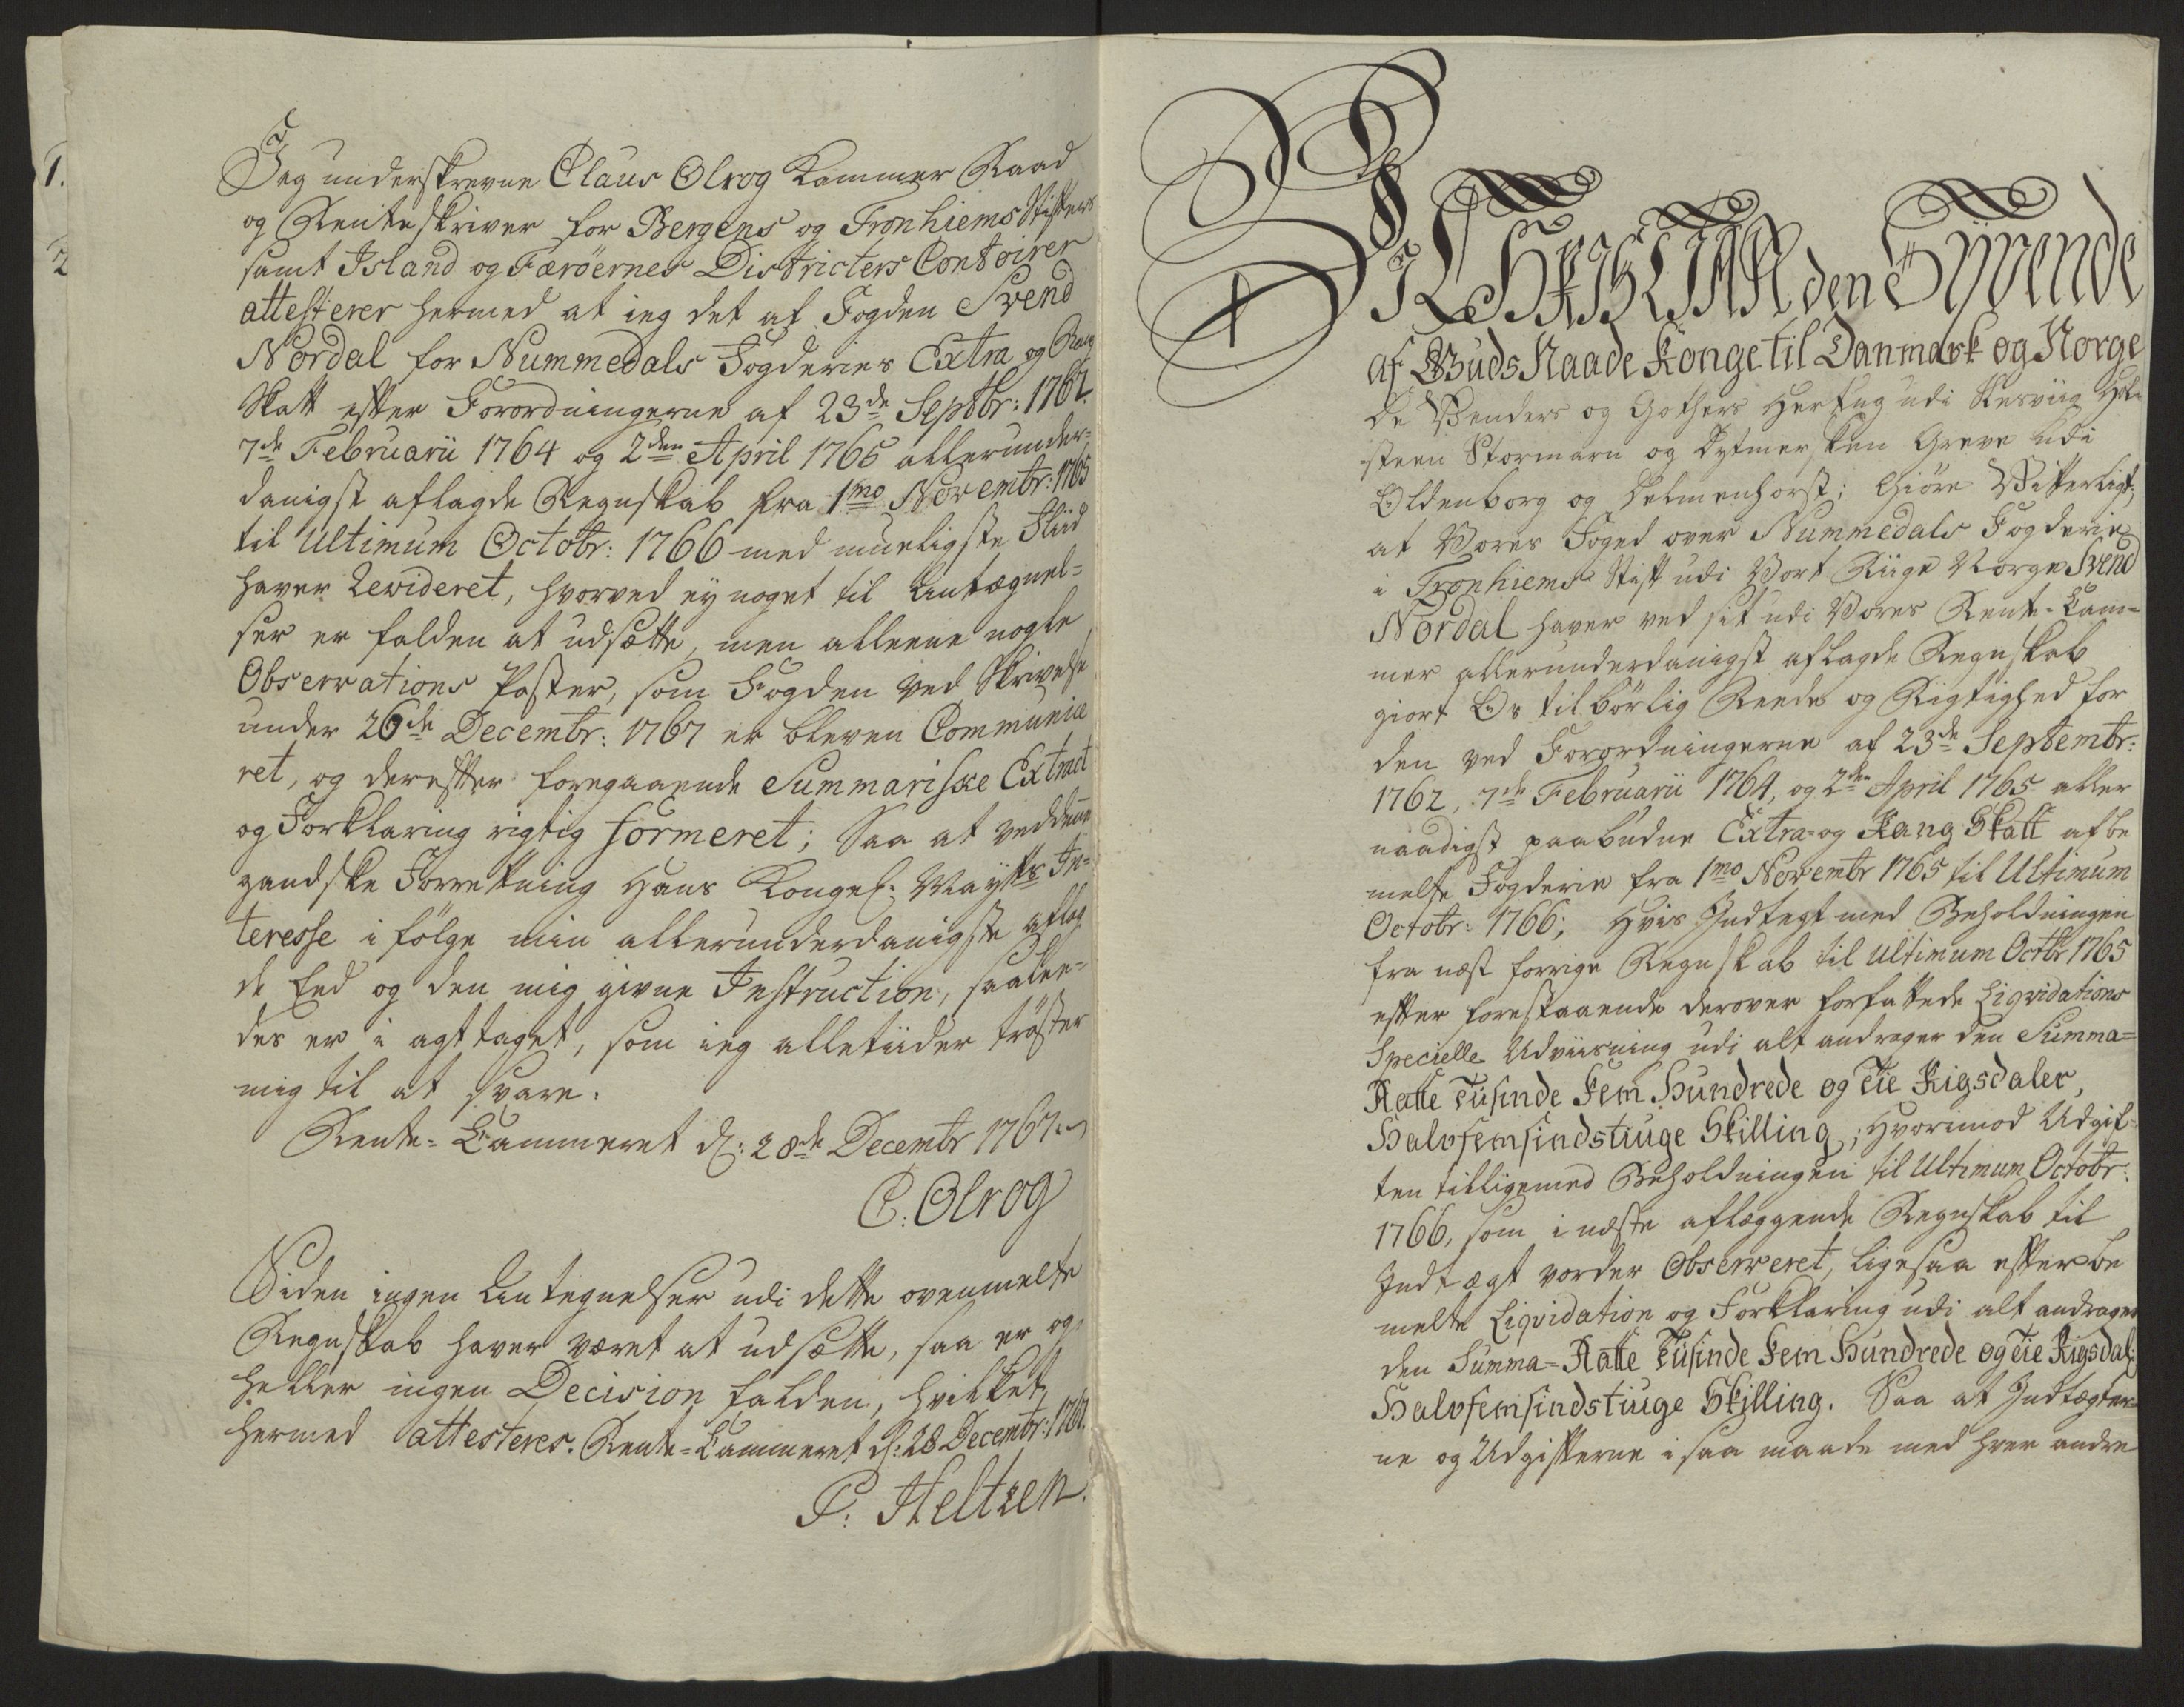 Jeg underskrevne Claus Olrog Kammer Raad
og Renteskriver for Bergens og Tronhiems Stifter
samt Island og Færöernes Districters Contoirer
attesterer hermed at ieg det af Fogden Svend
Nordal for Nummedals Fogderies Extra og Rang
Skatt efter Forordningerne af 23de Septbr: 1762.
7de Februarii 1764 og 2den April 1765 allerunder-
danigst aflagde Regnskab fra 1mo Novembr: 1765
til Ultimum Octobr: 1766 med mueligste Fliid
haver Revideret, hvorved ey noget til Antægnel-
ser er falden at udsætte, men alleene nogle
Observations Poster, som Fogden ved Skrivelse
under 26de Decembr: 1767 er bleven Communice
ret, og derefter foregaaende Summariske Extract
og Forklaring rigtig formeret; Saa at ved denne
gandske Forretning Hans Kongel: Mayts In-
teresse i fölge min allerunderdanigste aflag
de Eed og den mig givne Instruction, saalee-
des er i agttaget, som ieg alletiider tröster
mig til at svare.
Rente-Cammeret d: 28de Decembr 1767.
C: Olrog
Siden ingen Antegnelser udi dette ovenmelte
Regnskab haver været at udsætte, saa er og
heller ingen Decision falden, hvilket
hermed attesteres. Rente-Cammeret d: 28 Decembr: 1767.
P: Heltzen.
1.
2
Vi CHRISTIAN den Syvende
af Guds Naade Konge til Danmark og Norge
De Venders og Gothers Hertug udi Slesviig Hol-
steen Stormarn og Dytmersken Greve udi
Oldenborg og Delmenhorst; Giöre Vitterligt,
at Vores Foged over Nummedals Fogderie
i Tronhiems Stift udi Vort Riige Norge Svend
Nordal haver ved sit udi Vores Rente-Cam-
mer allerunderdanigst aflagde Regnskab
giort Os tilbörlig Reede og Rigtighed for
den ved Forordningerne af 23de Septembr:
1762, 7de Februarii 1764, og 2den April 1765 aller
naadigst paabudne Extra- og Rang Skatt af be
melte Fogderie fra 1mo Novembr 1765 til Ultimum
Octobr: 1766; Hvis Indtegt med Beholdningen
fra næst forrige Regnskab til Ultimum Octbr 1765
efter forestaaende derover forfattede Liqvidations
Specielle Udviisning udi alt andrager den Summa-
Aatte Tusinde Fem Hundrede og Tie Rigsdaler,
Halvfemsindstiuge Skilling; Hvorimod Udgif-
ten tilligemed Beholdningen til Ultimum Octobr:
1766, som i næste aflæggende Regnskab til
Indtægt vorder Observeret, ligesaa efter be
melte Liqvidation og Forklaring udi alt andrager
den Summa- Aatte Tusinde Fem Hundrede og Tie Rigsdal:
Halvfemsindstiuge Skilling. Saa at Indtægter-
ne og Udgifterne i saa maade med hver andre